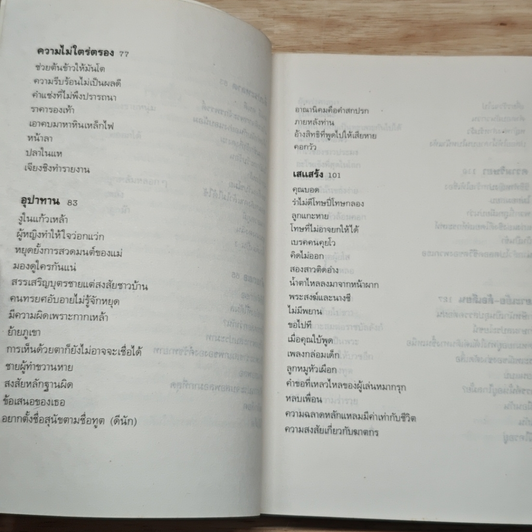 ความไม่ไตร่ตรอง 77
ช่วยต้นข้าวให้มันโต
ความรีบร้อนไม่เป็นผลดี
คำแช่งที่ไม่พึงปรารถนา
ราคารองเท้า
เอาคบมาหาหินเหล็กไฟ
หน้าลา
ปลาในแห
เจียงชิงทำรายงาน
อุปาทาน 83
งูในแก้วเหล้า
ผู้หญิงทำให้ใจว่อกแว่ก
หยุดยั้งการสวดมนต์ของแม่
มองดูใครกันแน่
สรรเสริญบุตรชายแต่สงสัยชาวบ้าน
คนทรยศอับอายไม่รู้จักหยุด
มีความผิดเพราะกากเหล้า
ย้ายภูเขา
การเห็นด้วยตาก็ยังไม่อาจจะเชื่อได้
ชายผู้ทำขวานหาย
สงสัยหลักฐานผิด
ข้อเสนอของเธอ
อยากตั้งชื่อสุนัขตามชื่อทูต (ดีนัก)
อาณานิคมคือคำสกปรก
ภายหลังท่าน
อ้างสิทธิที่พูดไปให้เสียหาย
คอกวัว
เสแสร้ง 101
คุณบอด
ว่าไม่ดีโทษปี่โทษกลอง
ลูกแกะหาย
โทษที่ไม่อาจยกให้ได้
เบรคคนคุยโว
คิดไม่ออก
สองสาวติดอ่าง
น้ำตาไหลลงมาจากหน้าผาก
พระสงฆ์และนางชี
ไม่มีพยาน
ขอไปที
เมื่อคุณใบ้พูด
เพลงกล่อมเด็ก
ลูกหมูหัวเผือก
คำขอที่เหลวไหลของผู้เล่นหมากรุก
หลบเพื่อน
ความฉลาดหลักแหลมมีค่าเท่ากับชีวิต
ความสงสัยเกี่ยวกับฆาตกร